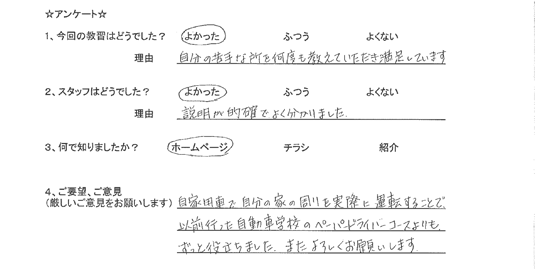 ☆アンケート☆
1、今回の教習はどうでした？ よかった ふつう よくない
理由 自分の苦手な所を何度も教えていただき満足しています
2、スタッフはどうでした？ よかった ふつう よくない
理由 説明が的確でよく分かりました.
3、何で知りましたか？ ホームページ チラシ 紹介
4、ご要望、ご意見
(厳しいご意見をお願いします) 自家用車で自分の家の周りを実際に運転することで
以前行った自動車学校のペーパードライバーコースよりも
ずっと役立ちました. またよろしくお願いします.